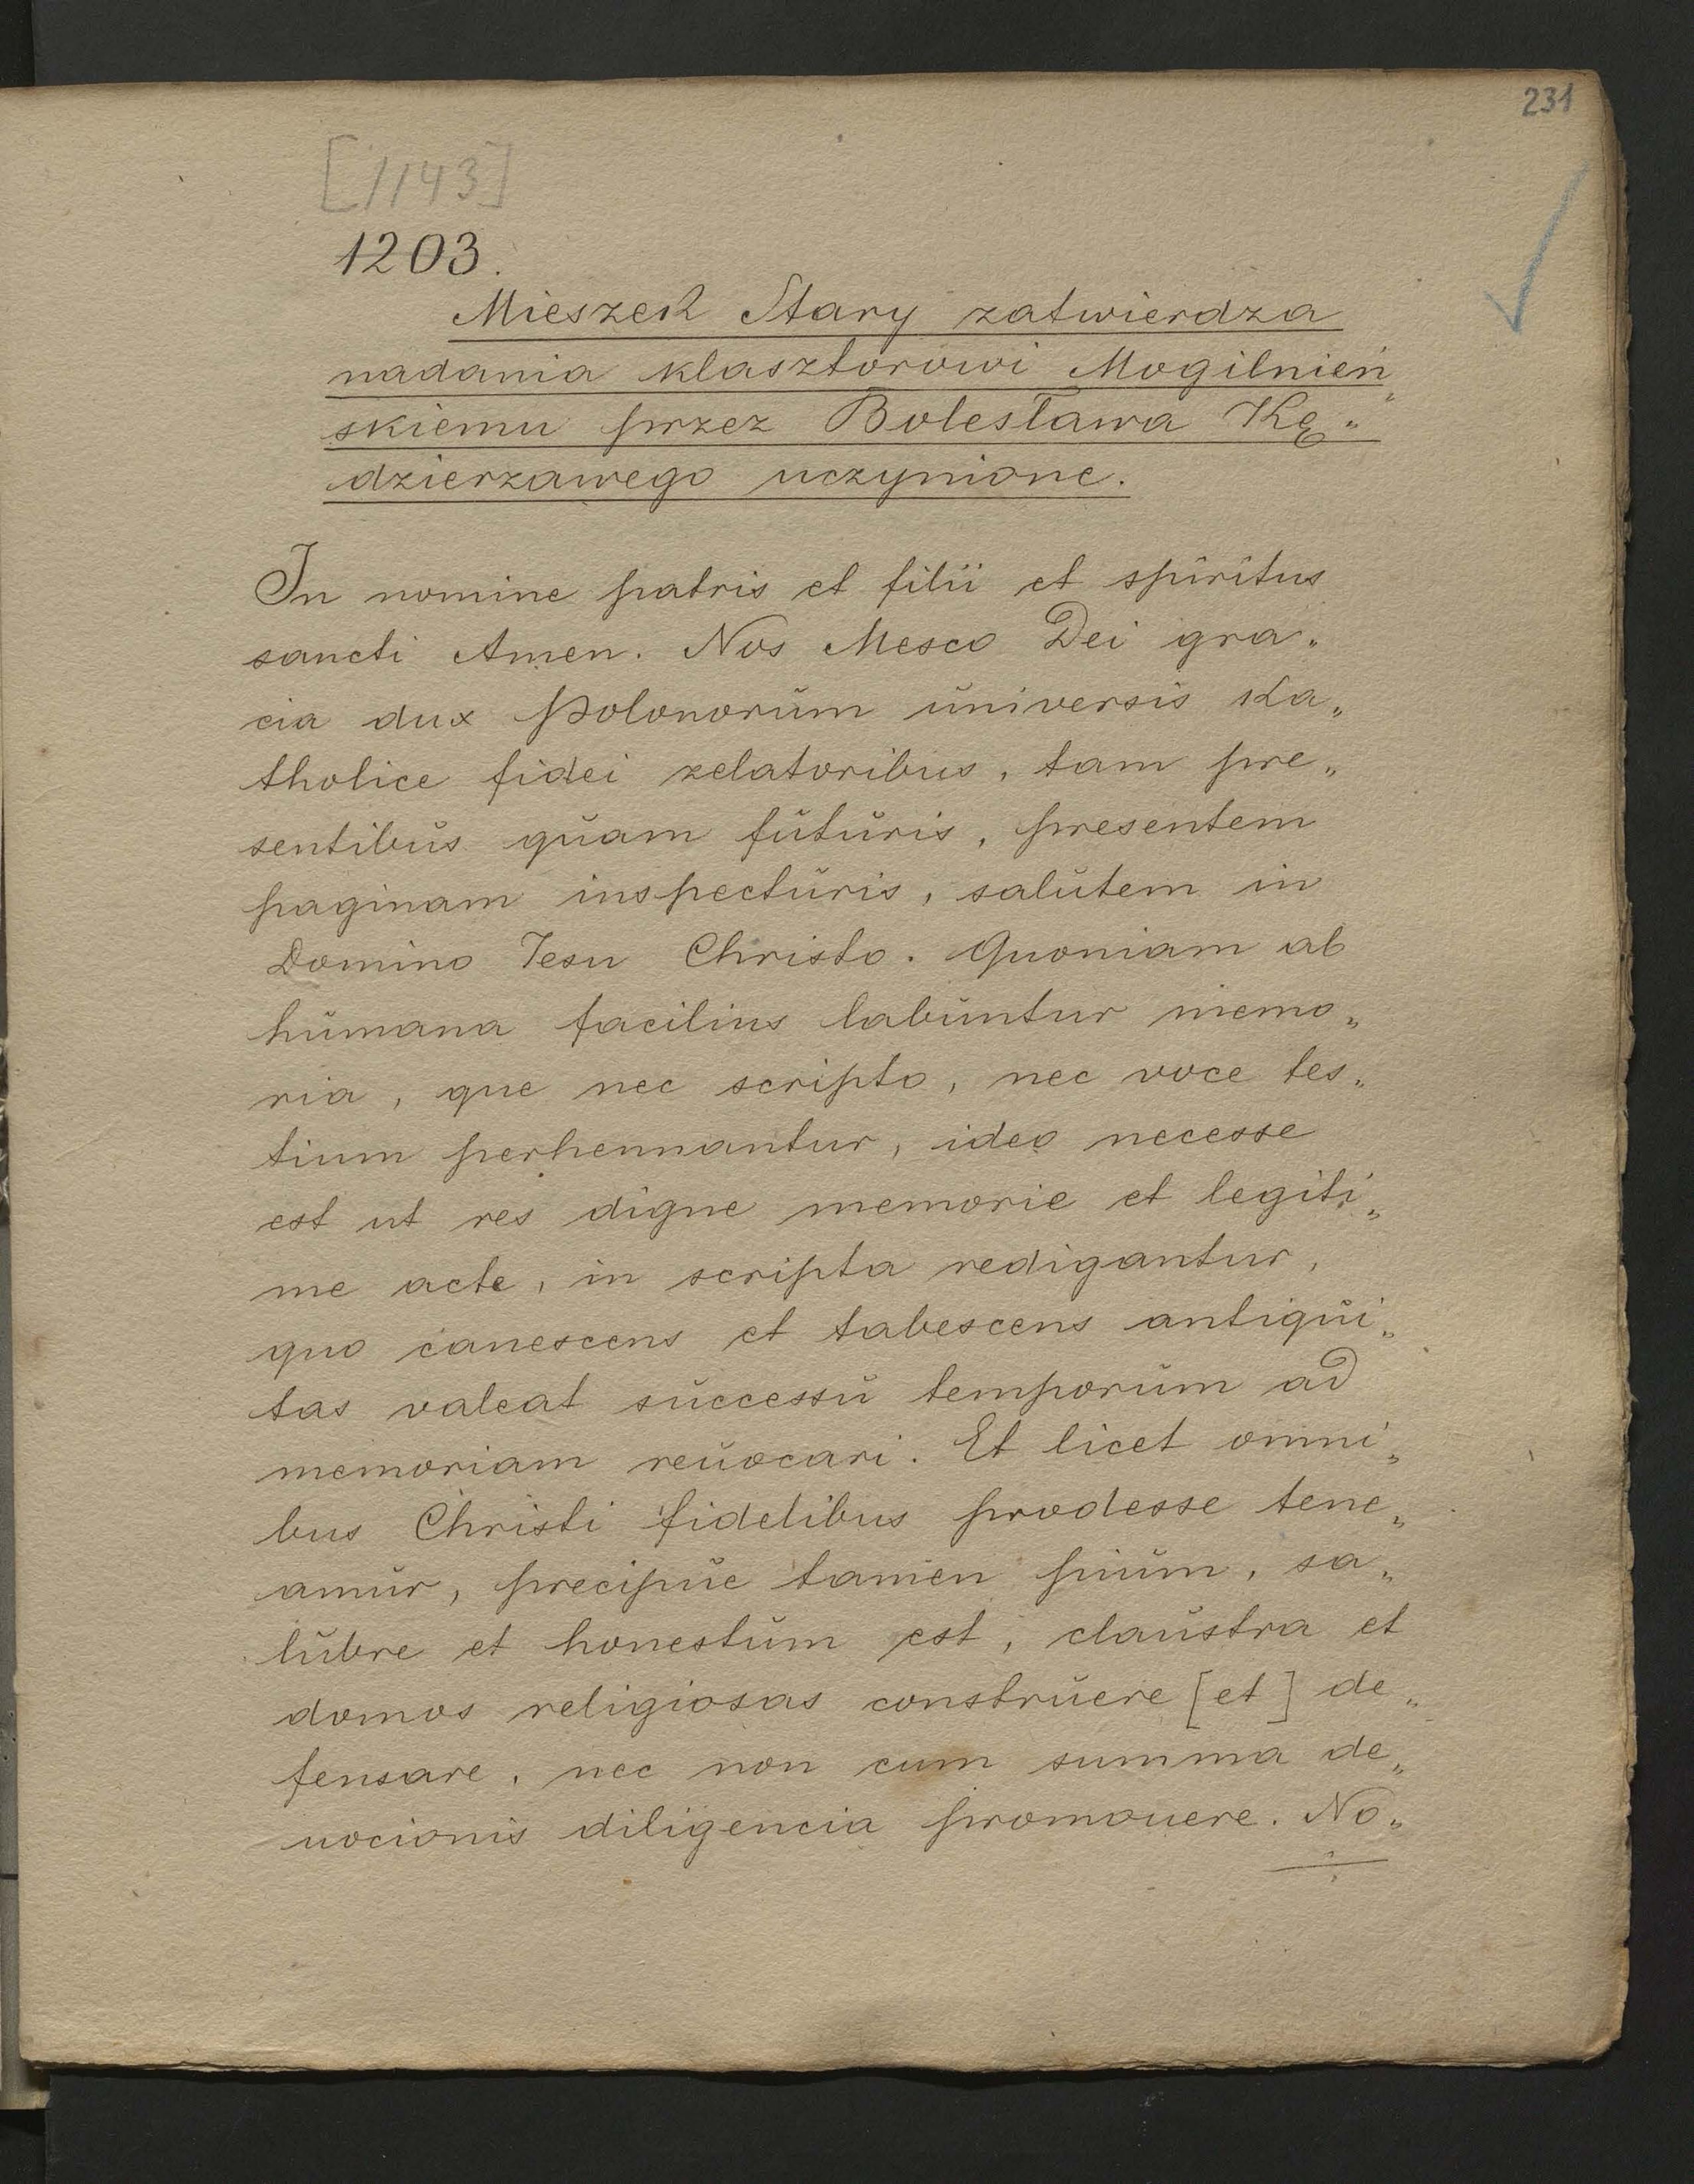 231
[1143]
1203.
Mieszek Stary zatwierdza
nadania klasztorowi Mogilnień„
skiemu przez Bolesława Kę„
dzierzawego uczynione.
In nomine patris et filii et spiritus
sancti Amen. Nos Mesco Dei gra„
cia dux Polonorŭm ŭniversis Ka„
tholice fidei zelatoribus, tam pre„
sentibŭs qŭam fŭtŭris, presentem
paginam inspectŭris, salŭtem in
Domino Iesu Christo. Quoniam ab
hŭmana facilius labŭntur memo„
ria, que nec scripto, nec voce tes„
tium perhennantur, ideo necesse
est ut res digne memorie et legiti„
me acte, in scripta redigantur,
quo canescens et tabescens antiqŭi„
tas valeat sŭccessŭ temporŭm ad
memoriam reŭocari. Et licet omni„
bus Christi fidelibus prodesse tene„
amŭr, precipŭe tamen piŭm, sa„
lŭbre et honestŭm est, claŭstra et
domos religiosas constrŭere [et] de„
fensare, nec non cum summa de„
uocionis diligencia promouere. No„